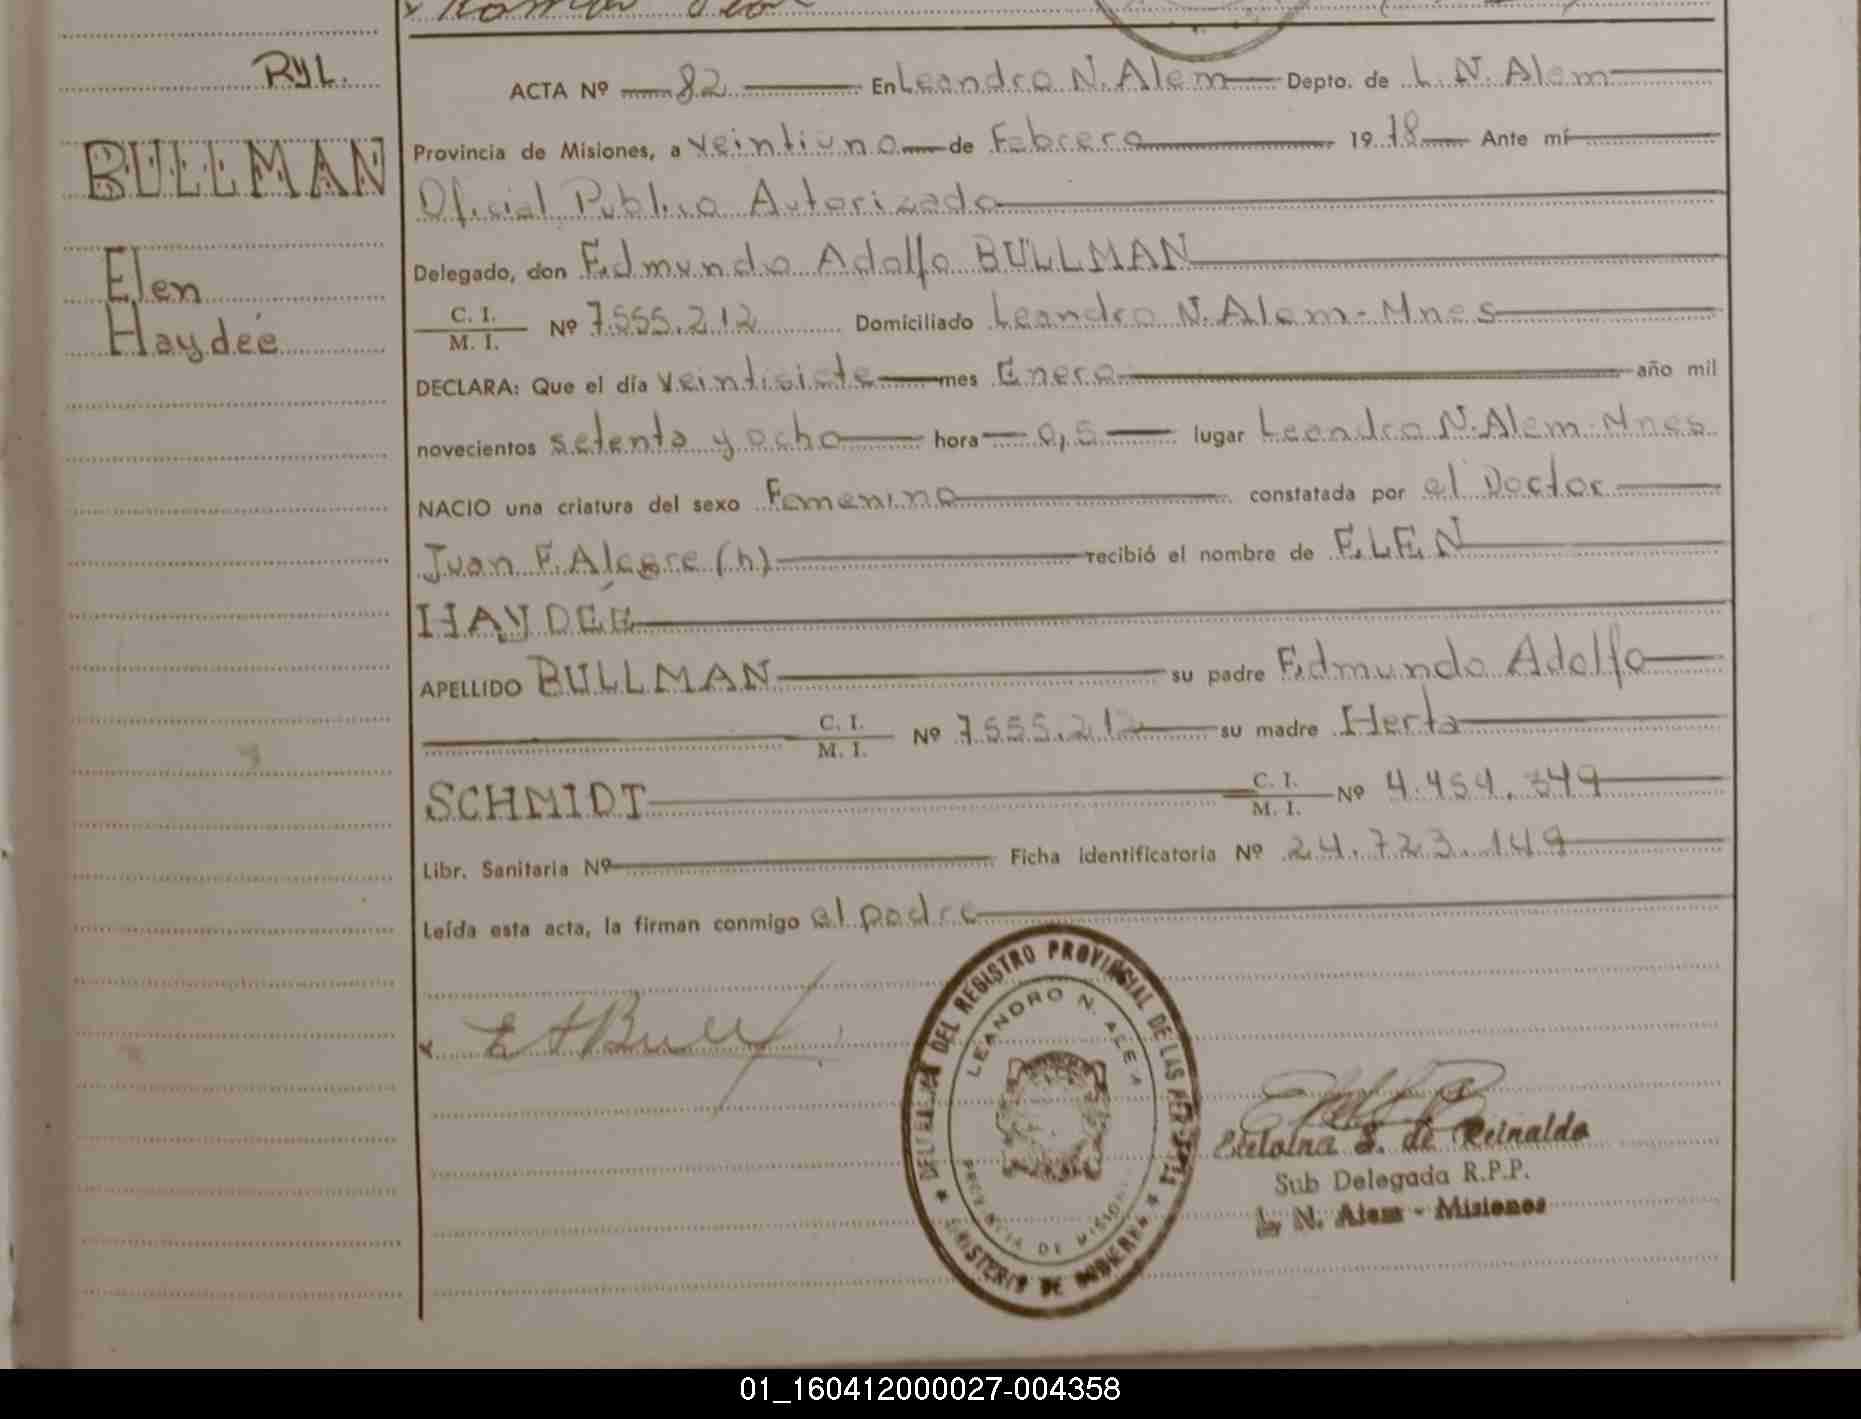 RyL.
BULLMAN
Elen
Haydée
ACTA Nº 82 En Leandro N. Alem Depto. de L. N. Alem
Provincia de Misiones, a veintiuno de Febrero 1978 Ante mí
Oficial Público Autorizado
Delegado, don Edmundo Adolfo BULLMAN
C. I.
M. I. Nº 7.555.212 Domiciliado Leandro N. Alem - Mnes
DECLARA: Que el día veintisiete mes Enero año mil
novecientos setenta y ocho hora 0,5 lugar Leandro N. Alem - Mnes
NACIO una criatura del sexo Femenino constatada por el Doctor
Juan F. Alegre (h) recibió el nombre de ELEN
HAYDÉE
APELLIDO BULLMAN su padre Edmundo Adolfo
C. I.
M. I. Nº 7.555.212 su madre Herta
SCHMIDT C. I.
M. I. Nº 4.454.349
Libr. Sanitaria Nº Ficha identificatoria Nº 24.723.149
Leída esta acta, la firman conmigo el padre
DEL REGISTRO PROVINCIAL DE LAS
LEANDRO N. ALEM
PROVINCIA DE MISIONES
MINISTERIO DE GOBIERNO
S. de Reinaldo
Sub Delegada R.P.P.
L. N. Alem - Misiones
01_160412000027-004358